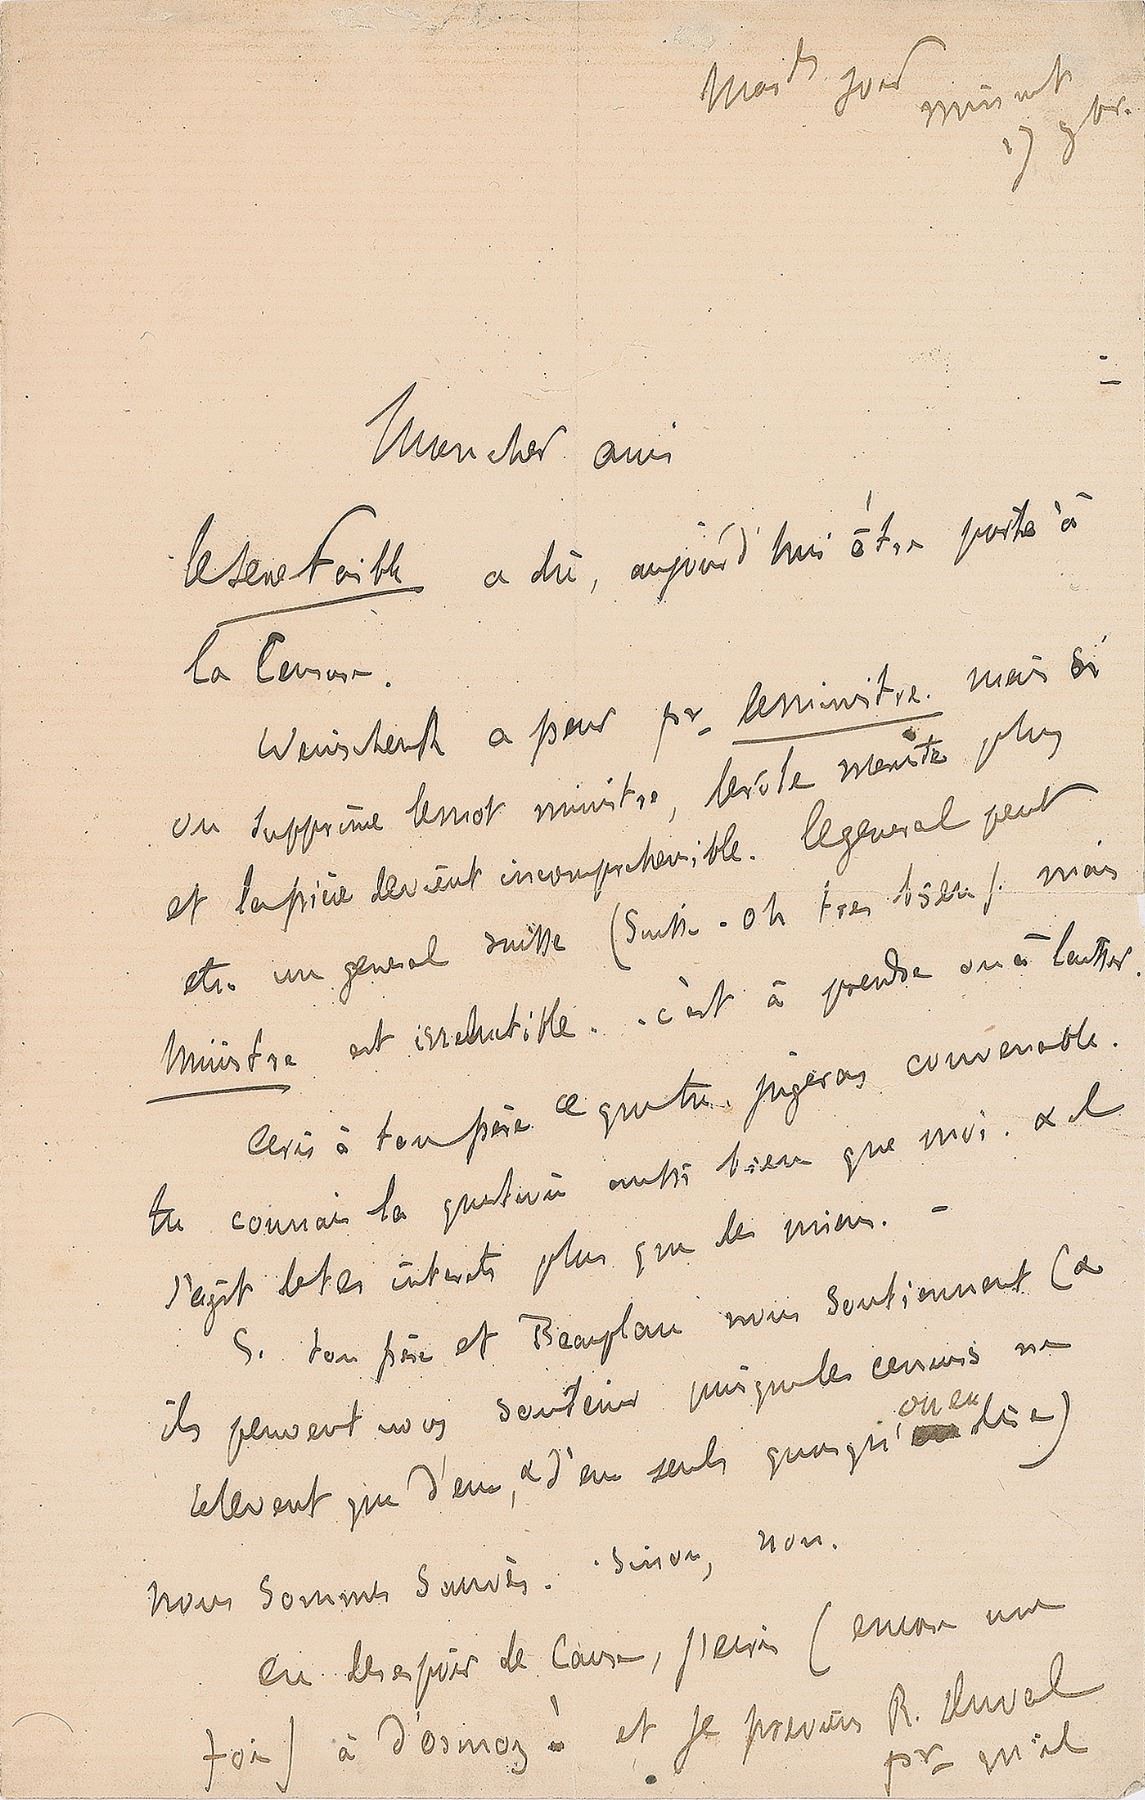 Mardi soir
minuit
17 9br.
Mon cher ami
le sexe faible a dû, aujourd'hui être porté à
la Censure.
Weinschenk a peur pr le ministre. mais si
on supprime le mot ministre, le rôle n'existe plus
et la pièce devient incomprehensible. le general peut
etre un general suisse (suisse - oh tres bien). mais
Ministre est irreductible. - c'est à prendre ou à laisser.
ecris à ton père ce que tu jugeras convenable.
tu connais la question aussi bien que moi. & il
s'agit de tes interets plus que des miens. -
Si ton père et Beauplan nous soutiennent (&
ils peuvent nous soutenir puisque les censeurs ne
relevent que d'eux, & d'eux seuls quoiqu'on en dise)
nous sommes sauvés. - Sinon, non.
en desespoir de cause, j'ecris (encore une
fois) à d'osmoy ! et je previens R. Duval
pr qu'il